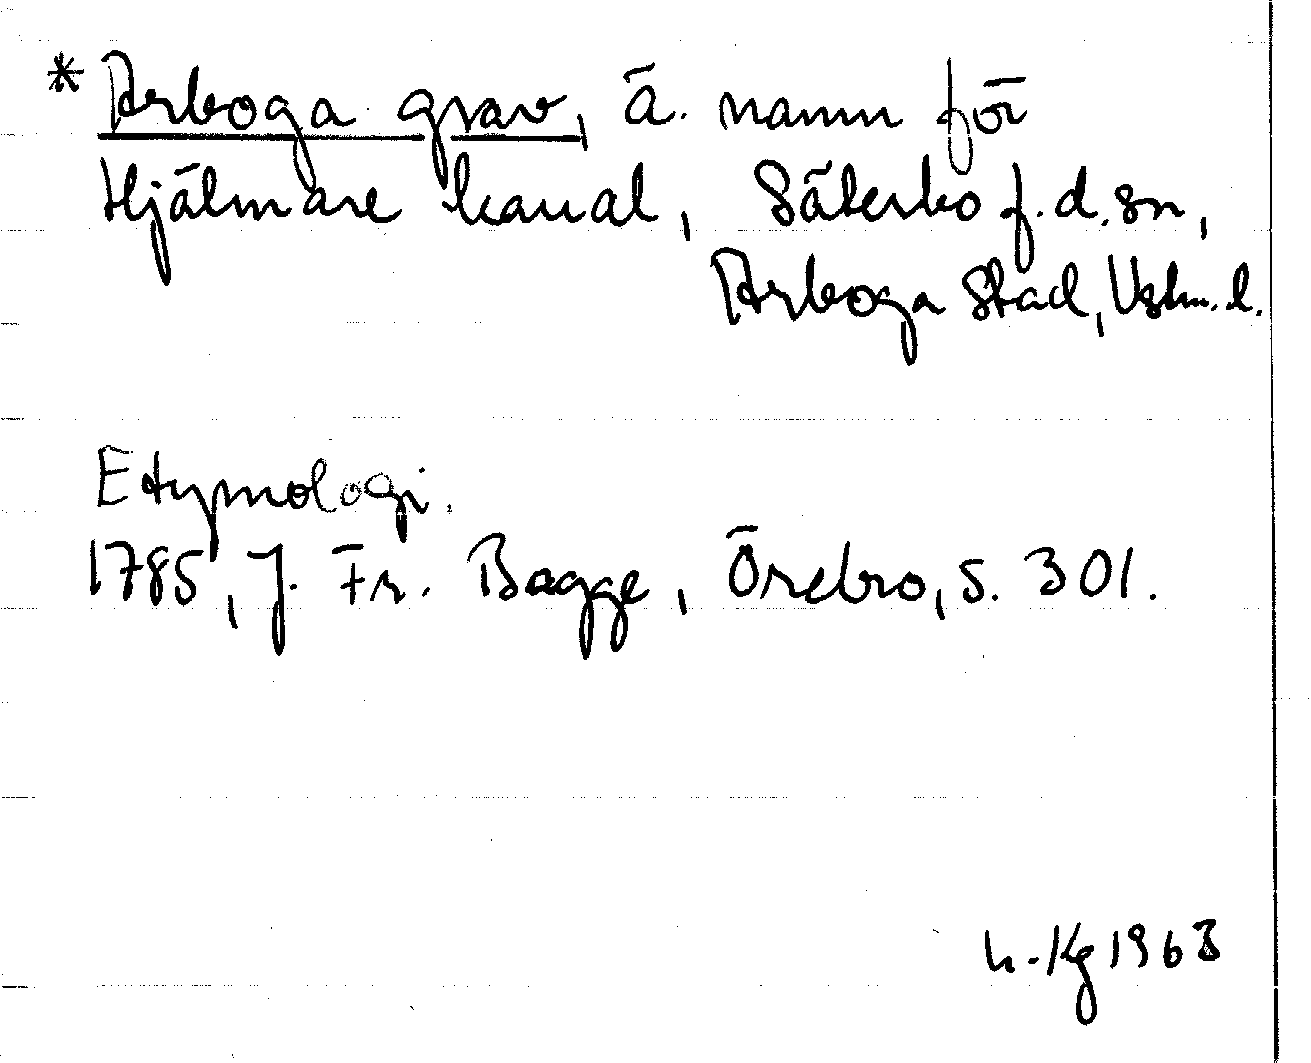 * Arboga grav, ä. namn för
Hjälmare kanal, Säterbo f.d. sn,
Arboga stad, Vstm. l.
Etymologi.
1785, J. Fr. Bagge, Örebro, s. 301.
1963